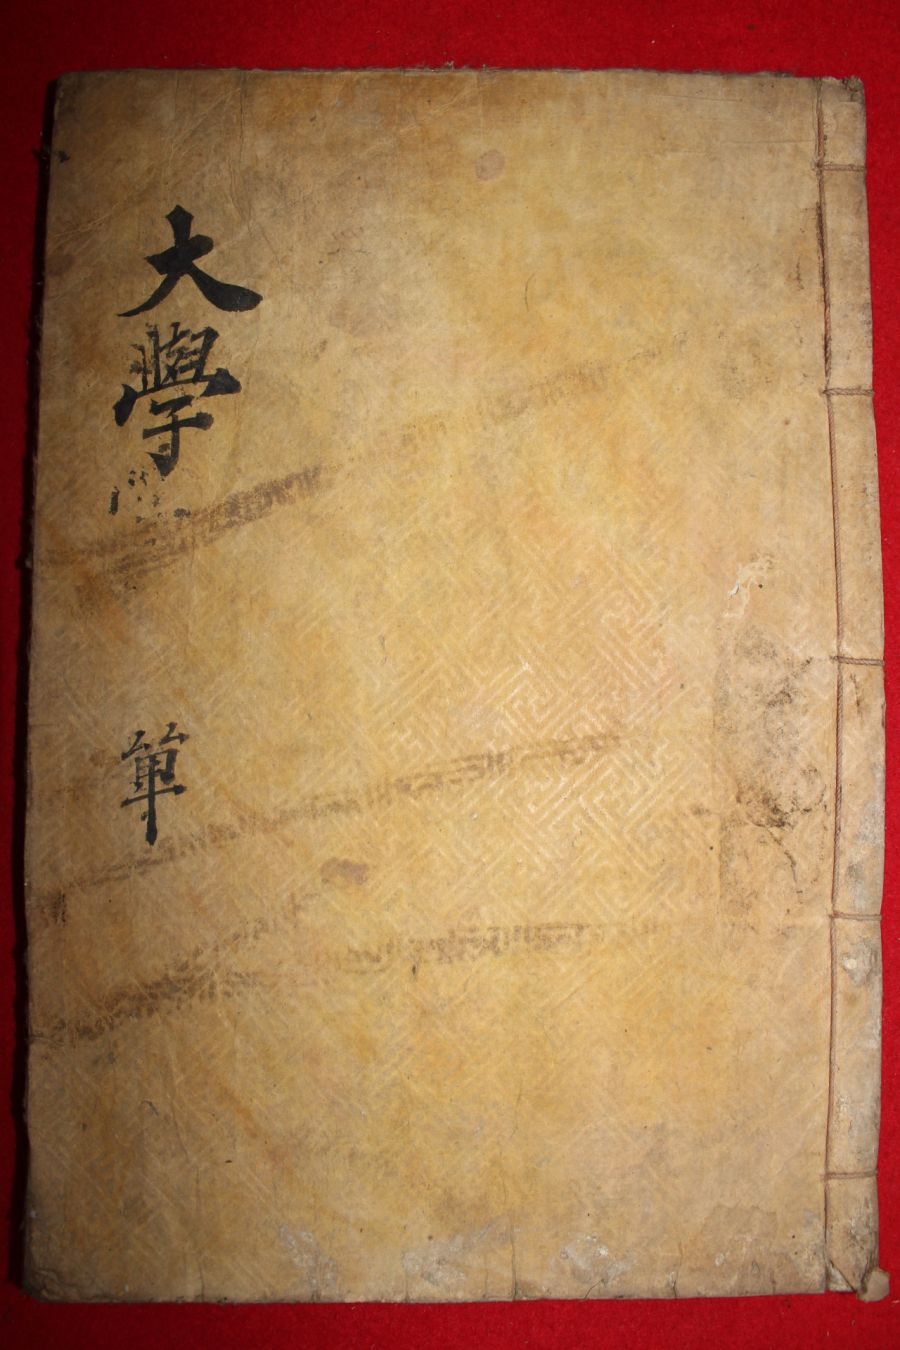 大學
單